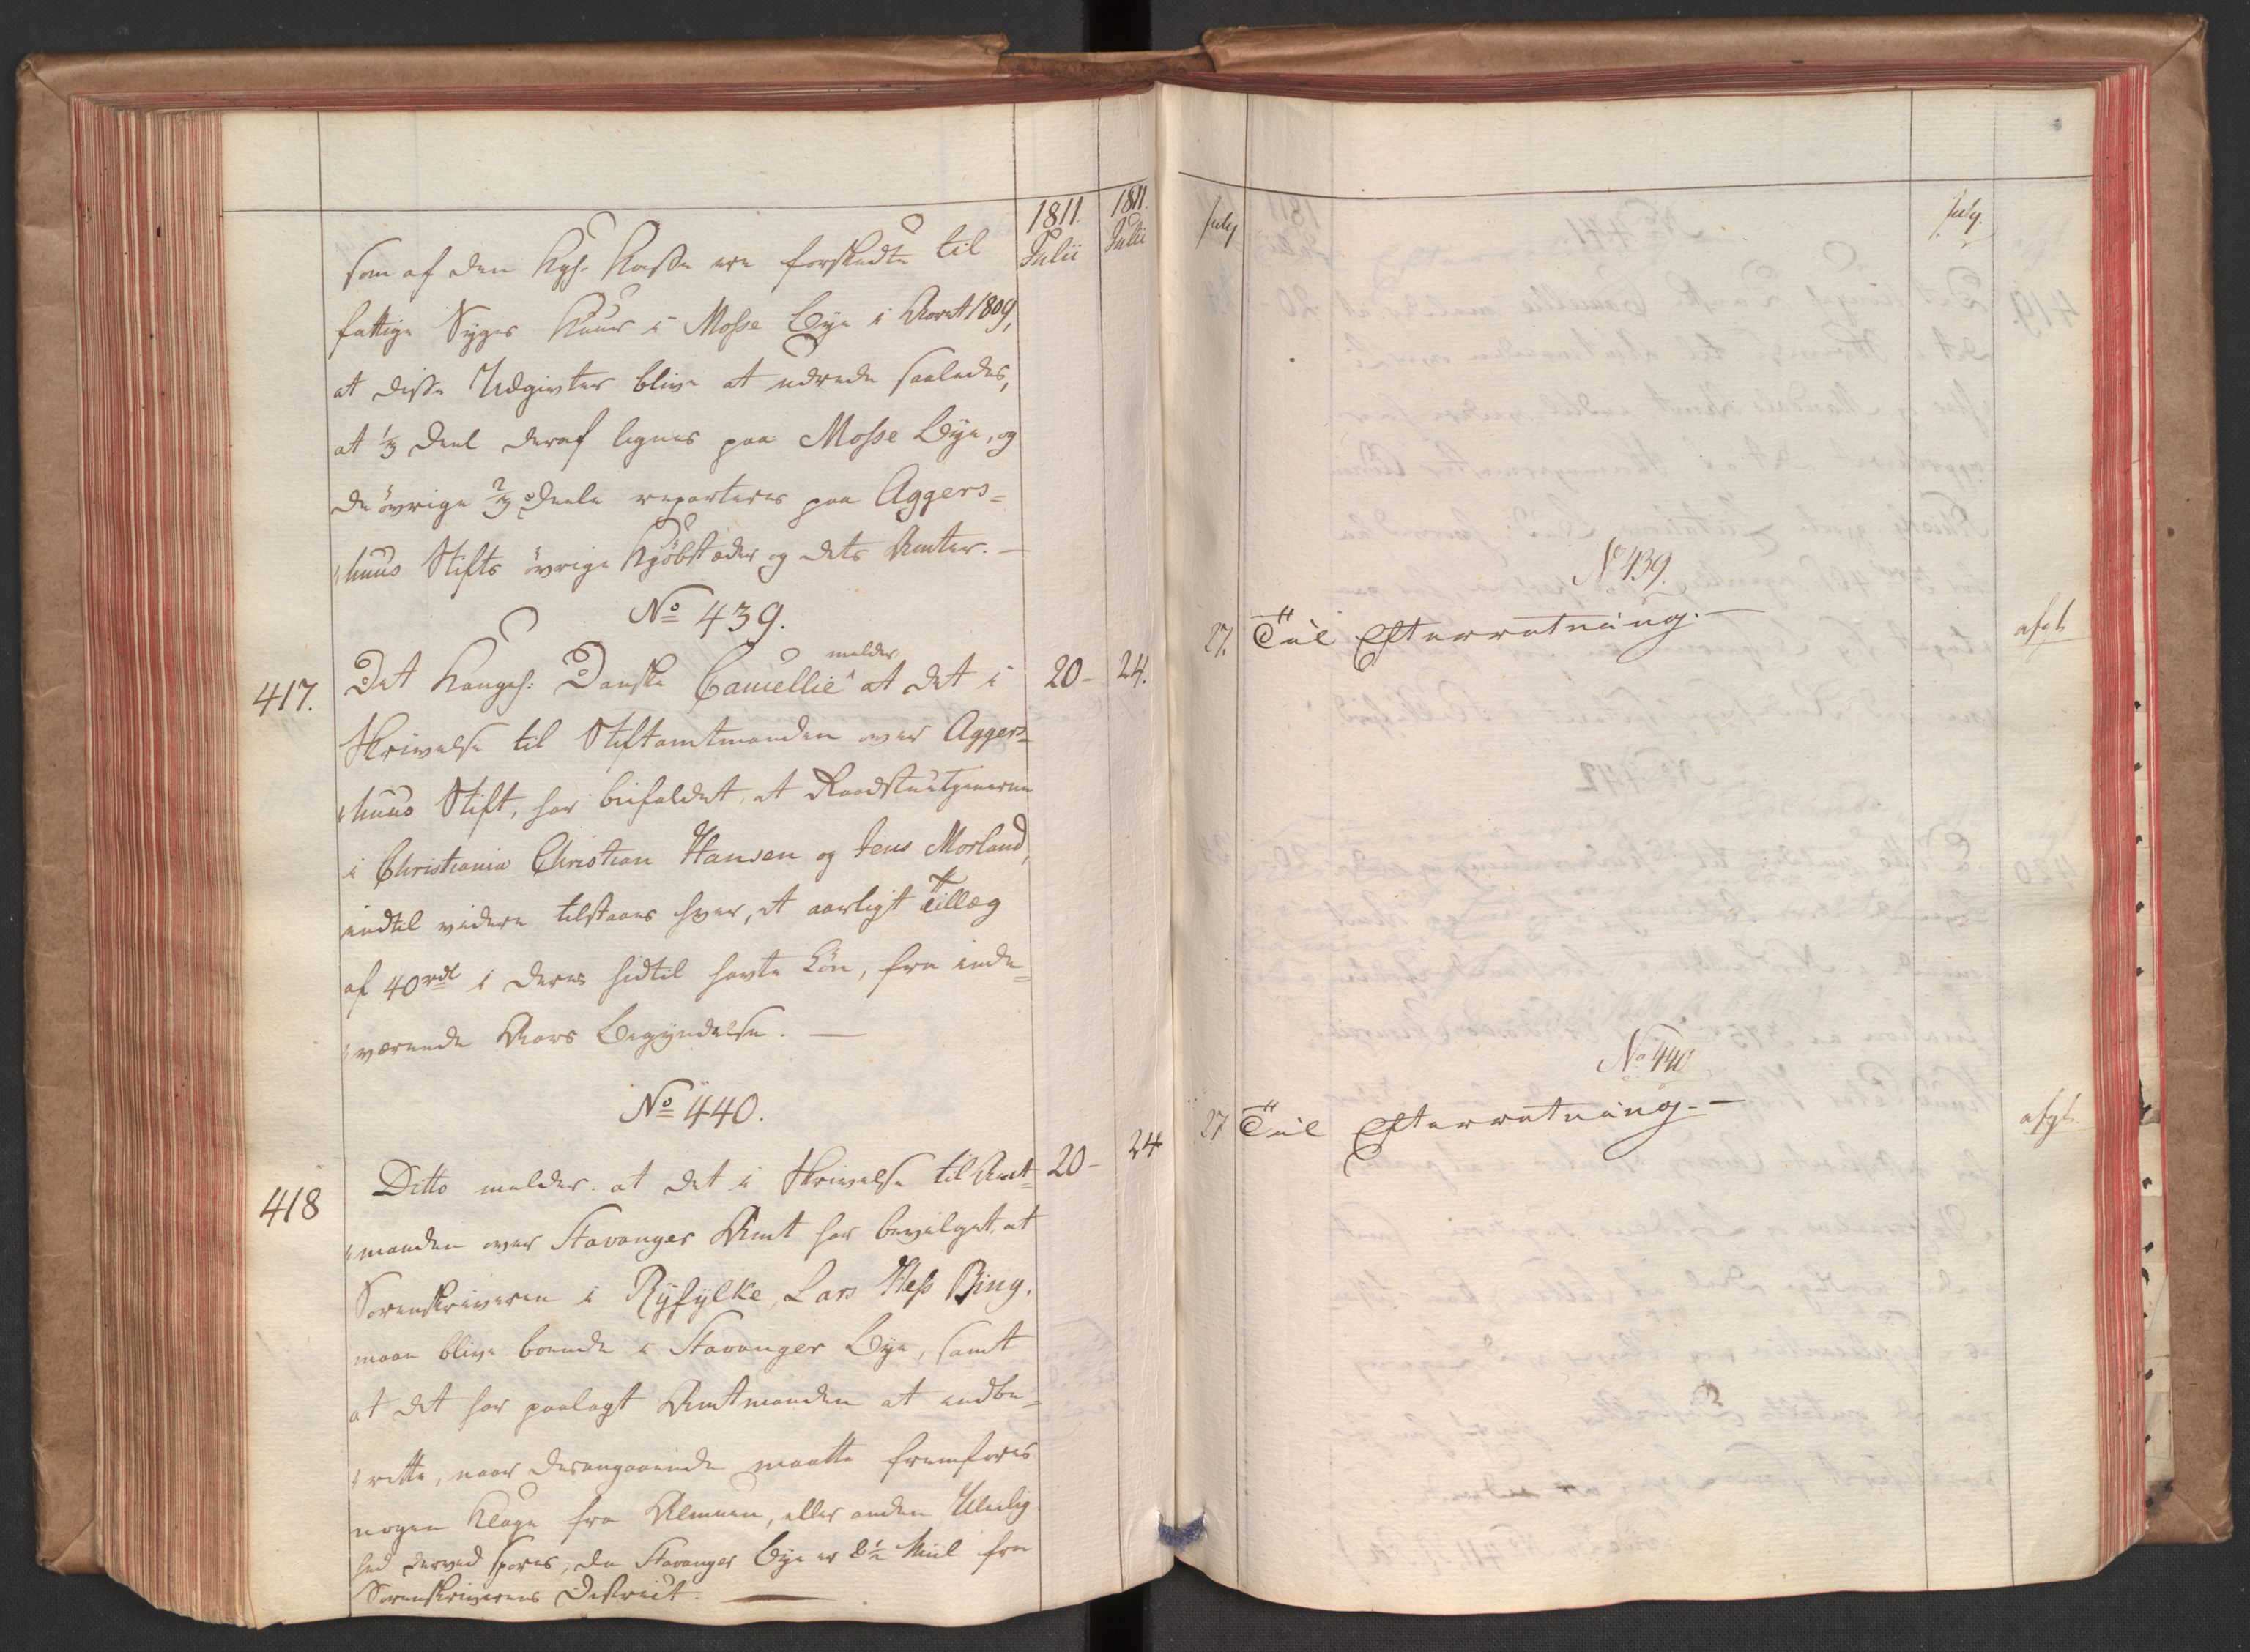 1811. 1811.
Julii Julii
som af den Kgl. Kasse ere forskudte til
fattige Syges Kuur i Mosse Bye i Aaret 1809,
at disse Udgivter blive at udrede saaledes,
at 1/3 Deel deraf lignes paa Mosse Bye, og
de övrige 2/3 Deele reparteres paa Aggers=
huus Stifts övrige Kjöbstæder og dets Amter. —
No 439.
417. Det Kongel: Danske Cancellie melder at det i 20- 24.
Skrivelse til Stiftamtmanden over Aggers=
huus Stift, har bifaldet, at Raadstuetjenerne
i Christiania Christian Hansen og Jens Morland,
indtil videre tilstaaes hver, et aarligt Tillæg
af 40 rdl i deres hidtil havte Lön, fra inde=
værende Aars Begyndelse. —
No 440.
418 Ditto melder at det i Skrivelse til Amt= 20- 24
manden over Stavanger Amt har bevilget, at
Sorenskriveren i Ryfylke, Lars Hess Bing,
maae blive boende i Stavanger Bye, samt
at det har paalagt Amtmanden at indbe=
rette, naar desangaaende maatte fremföres
nogen Klage fra Almuen, eller anden Uleilig
hed derved spores, da Stavanger Bye er 2½ Miil fra
Sorenskriverens District. —
July July.
No 439.
27. Til Efterretning. — afgl.
No 440
27 Til Efterretning. — afgl.